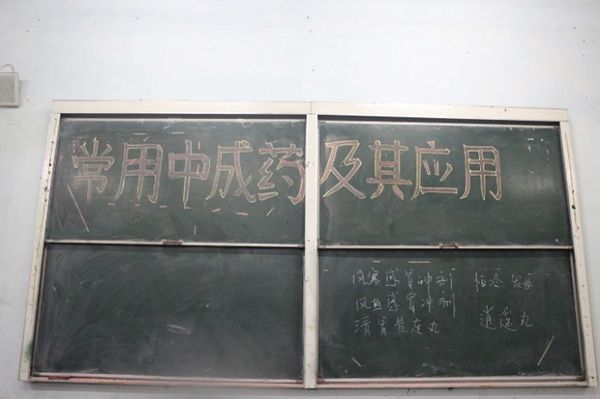 常用中成药及其应用
风寒感冒冲剂 怕冷 发热
风热感冒冲剂
清胃黄连丸 逍遥丸